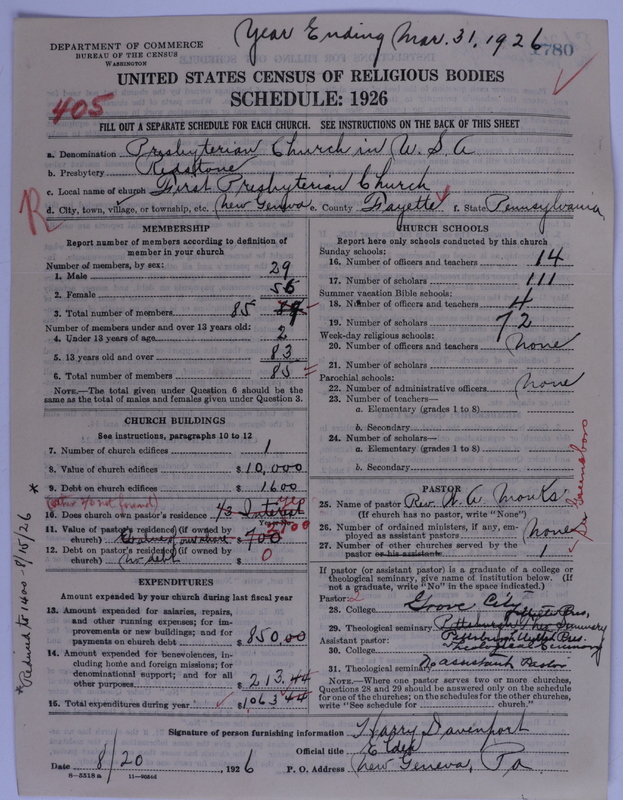 Year Ending Mar. 31, 1926
1780
DEPARTMENT OF COMMERCE
BUREAU OF THE CENSUS
WASHINGTON
UNITED STATES CENSUS OF RELIGIOUS BODIES
405
SCHEDULE: 1926
FILL OUT A SEPARATE SCHEDULE FOR EACH CHURCH. SEE INSTRUCTIONS ON THE BACK OF THIS SHEET
a. Denomination Presbyterian Church in U.S.A
b. Presbytery Redstone
c. Local name of church First Presbyterian Church
R
d. City, town, village, or township, etc. New Geneva e. County Fayette f. State Pennsylvania
MEMBERSHIP
Report number of members according to definition of
member in your church
Number of members, by sex:
1. Male 29
2. Female 56
3. Total number of members 85
Number of members under and over 13 years old:
4. Under 13 years of age 2
5. 13 years old and over 83
6. Total number of members 85
NOTE.—The total given under Question 6 should be the
same as the total of males and females given under Question 3.
CHURCH BUILDINGS
See instructions, paragraphs 10 to 12
7. Number of church edifices 1
8. Value of church edifices $10,000
9. Debt on church edifices $1600
10. Does church own pastor's residence 1/3 Interest yes
Yes or No
11. Value of pastor's residence (if owned by
church) $ 700 2100
12. Debt on pastor's residence (if owned by
church) No debt $ 0
* Reduced to 1400 - 8/15/26
EXPENDITURES
Amount expended by your church during last fiscal year
13. Amount expended for salaries, repairs,
and other running expenses; for im-
provements or new buildings; and for
payments on church debt $ 850.00
14. Amount expended for benevolences, in-
cluding home and foreign missions; for
denominational support; and for all
other purposes $ 213.44
15. Total expenditures during year $1,063.44
CHURCH SCHOOLS
Report here only schools conducted by this church
Sunday schools:
16. Number of officers and teachers 14
17. Number of scholars 111
Summer vacation Bible schools:
18. Number of officers and teachers 4
19. Number of scholars 72
Week-day religious schools:
20. Number of officers and teachers None
21. Number of scholars
Parochial schools:
22. Number of administrative officers None
23. Number of teachers—
a. Elementary (grades 1 to 8)
b. Secondary
24. Number of scholars—
a. Elementary (grades 1 to 8)
b. Secondary
PASTOR
25. Name of pastor Rev. W. A. Monks
(If church has no pastor, write "None")
26. Number of ordained ministers, if any, em-
ployed as assistant pastors None
27. Number of other churches served by the
pastor or his assistants 1
If pastor (or assistant pastor) is a graduate of a college or
theological seminary, give name of institution below. (If
not a graduate, write "No" in the space indicated.)
Pastor:
28. College Grove City
29. Theological seminary Pittsburgh Theo Seminary
Assistant pastor: Pittsburgh Pres.
30. College Theological Seminary
31. Theological seminary No assistant Pastor
NOTE.—Where one pastor serves two or more churches,
Questions 28 and 29 should be answered only on the schedule
for one of the churches; on the schedules for the other churches,
write "See schedule for church."
Signature of person furnishing information Harry Davenport
Official title Elder
Date 8/20, 1926 P. O. Address New Geneva, Pa
8—5518a 11—9024d